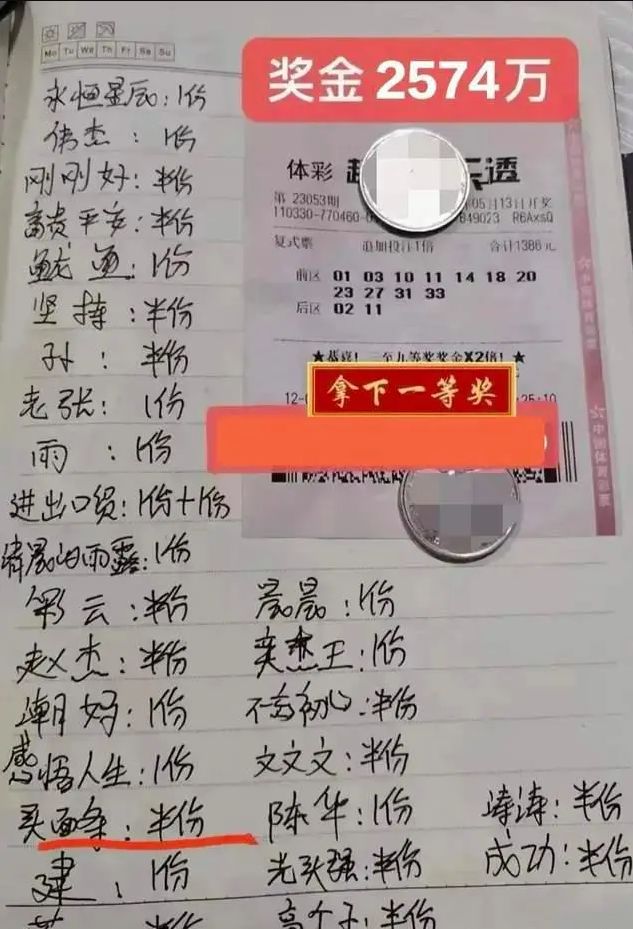 Mo Tu We Th Fr Sa Su
奖金2574万
永恒星辰：1份
伟杰：1份
刚刚好：半份
富贵平安：半份
鱿鱼：1份
坚持：半份
孙：半份
老张：1份
雨：1份
进出口贸：1份+1份
清晨的雨露：1份
体彩 超 乐透
第 23053期
05月13日开奖
110330-770460-0
849023 R6AxsQ
复式票 追加投注1倍 合计1386元
前区 01 03 10 11 14 18 20
23 27 31 33
后区 02 11
★恭喜！ 至九等奖奖金X2倍！★
拿下一等奖
12-0
25:10
中国体育彩票
彩云：半份 晨晨：1份
赵杰：半份 奕杰王：1份
潮好：1份 不忘初心：半份
感悟人生：1份 文文文：半份
买面条：半份 陈华：1份 涛涛：半份
建：1份 光头强：半份 成功：半份
半份 高个子：半份